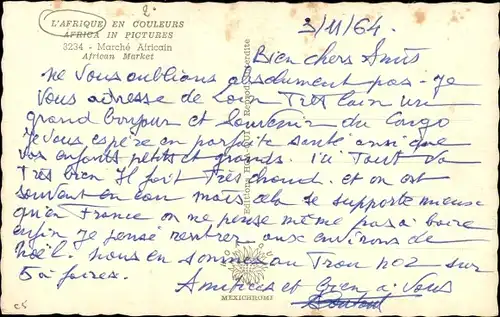 2
L'AFRIQUE EN COULEURS
AFRICA IN PICTURES
3234 - Marché Africain
African Market
3/11/64.
Bien chers Amis
ne vous oublions absolument pas. Je
vous adresse de Loin Très loin un
grand bonjour et Souvenir du Congo
Je vous espère en parfaite santé ainsi que
vos enfants petits et grands. Ici Tout va
Très bien Il fait Très chaud. et on est
souvent en eau mais cela se supporte mieux
qu'en France on ne pense même pas à boire
enfin Je pense rentrer aux environs de
Noël. nous en sommes au Trou no2 sur
5 à faires.
Amitiés et à Vous
Editions
Reproduction interdite
MEXICHROME